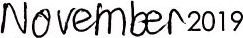 November 2019